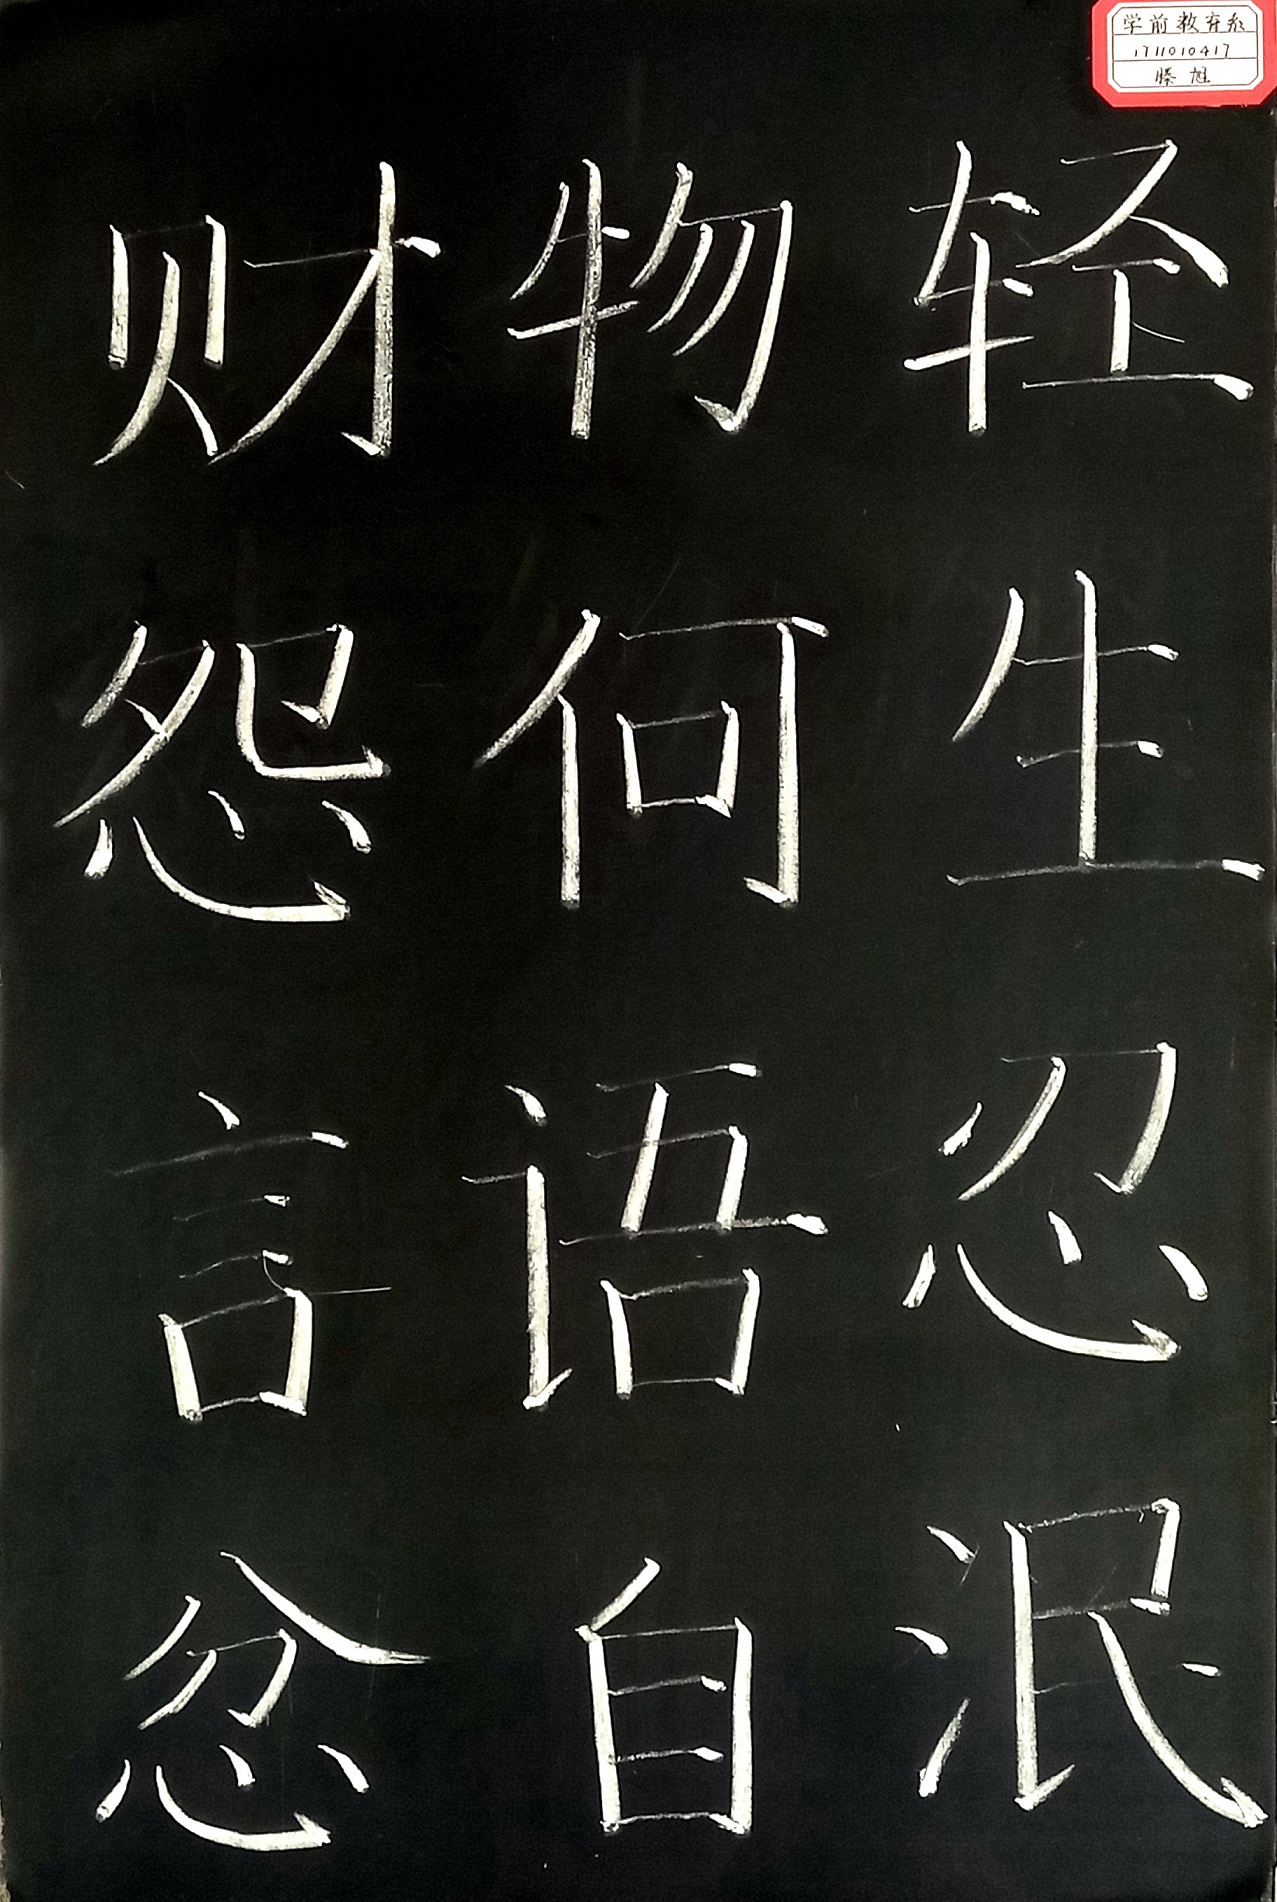 财物轻
怨何生
言语忍
忿自泯
学前教育系
1711010417
滕旭